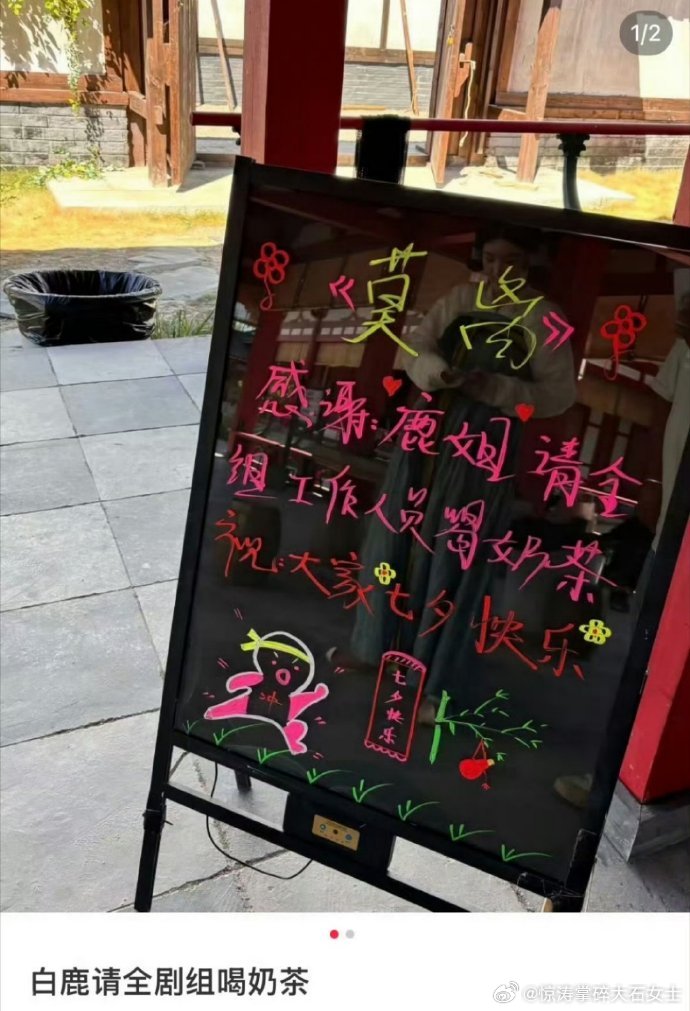 1/2
《莫离》
感谢:鹿姐请全
组工作人员喝奶茶
祝:大家七夕快乐
冲
七夕快乐
白鹿请全剧组喝奶茶
@惊涛掌碎大石女士